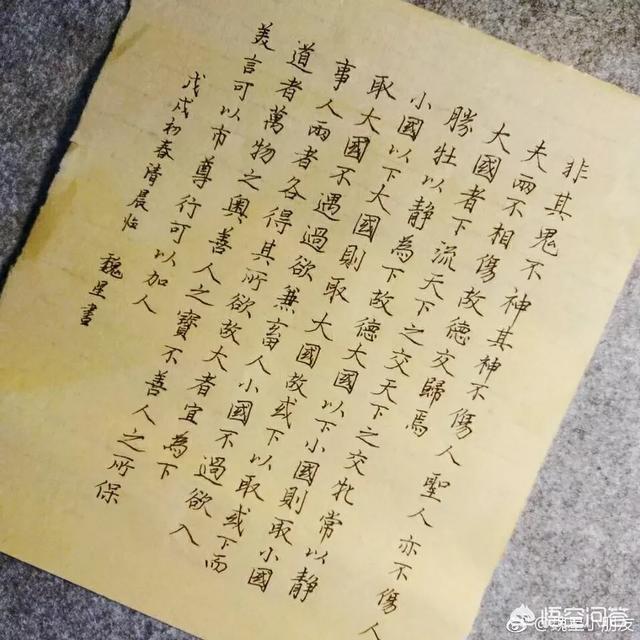 非其鬼不神其神不傷人聖人亦不傷人
夫兩不相傷故德交歸焉
大國者下流天下之交天下之交牝常以靜
勝牡以靜為下故德大國以下小國則取小國
小國以下大國則取大國故或下以取或下而
取大國不遇過欲兼畜人小國不過欲入
事人兩者各得其所欲故大者宜為下
道者萬物之奧善人之寶不善人之所保
美言可以市尊行可以加人
戊戌初春清晨临 魏星書
悟空问答
@魏星小朋友